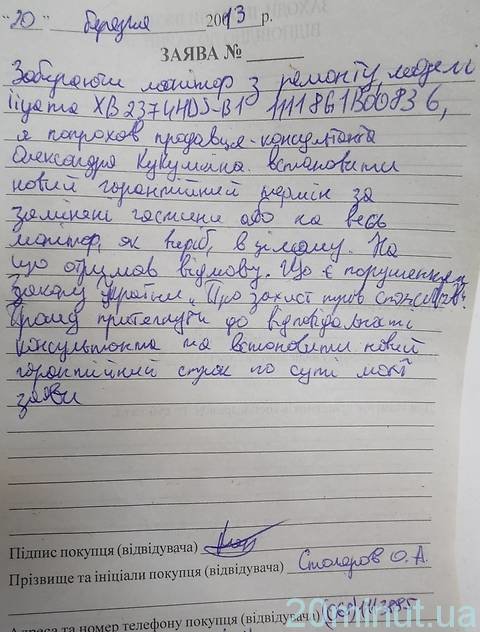 "20" березня 2013 р.
ЗАЯВА №
Забираючи монітор з ремонту, модель
iiyama XB2374HDS-B1 1111861B00836,
я попрохав продавця-консультанта
Олександра встановити
новий гарантійний термін за
замінені частини або на весь
монітор, як виріб, в цілому. На
що отримав відмову. Що є порушенням
закону України „Про захист прав споживачів".
Прошу притягнути до відповідальності
консультанта та встановити новий
гарантійний строк по суті моєї
заяви
Підпис покупця (відвідувача)
Прізвище та ініціали покупця (відвідувача) Столяров О. А.
Адреса та номер телефону покупця (відвідувача)
20minut.ua